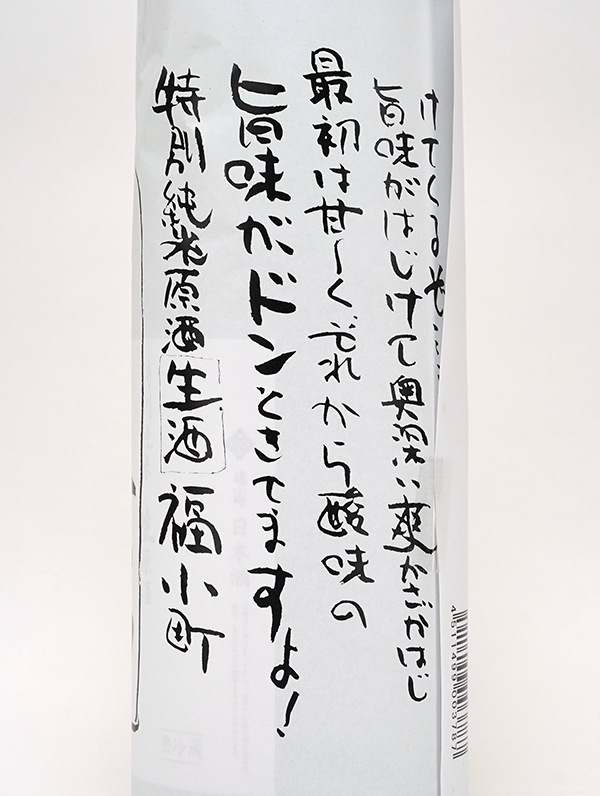 特別純米原酒生酒 福小町
旨味がドンときてますよ!
最初は甘〜くそれから酸味の
旨味がはじけて奥深い爽かさがはじ
けてくる
4 511499 003787
日本酒